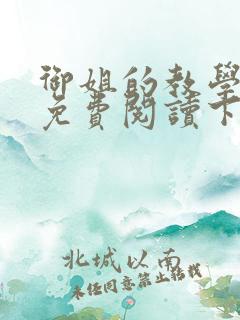 御姐的教學
免費閱讀下
北城以南
未經同意禁止轉載